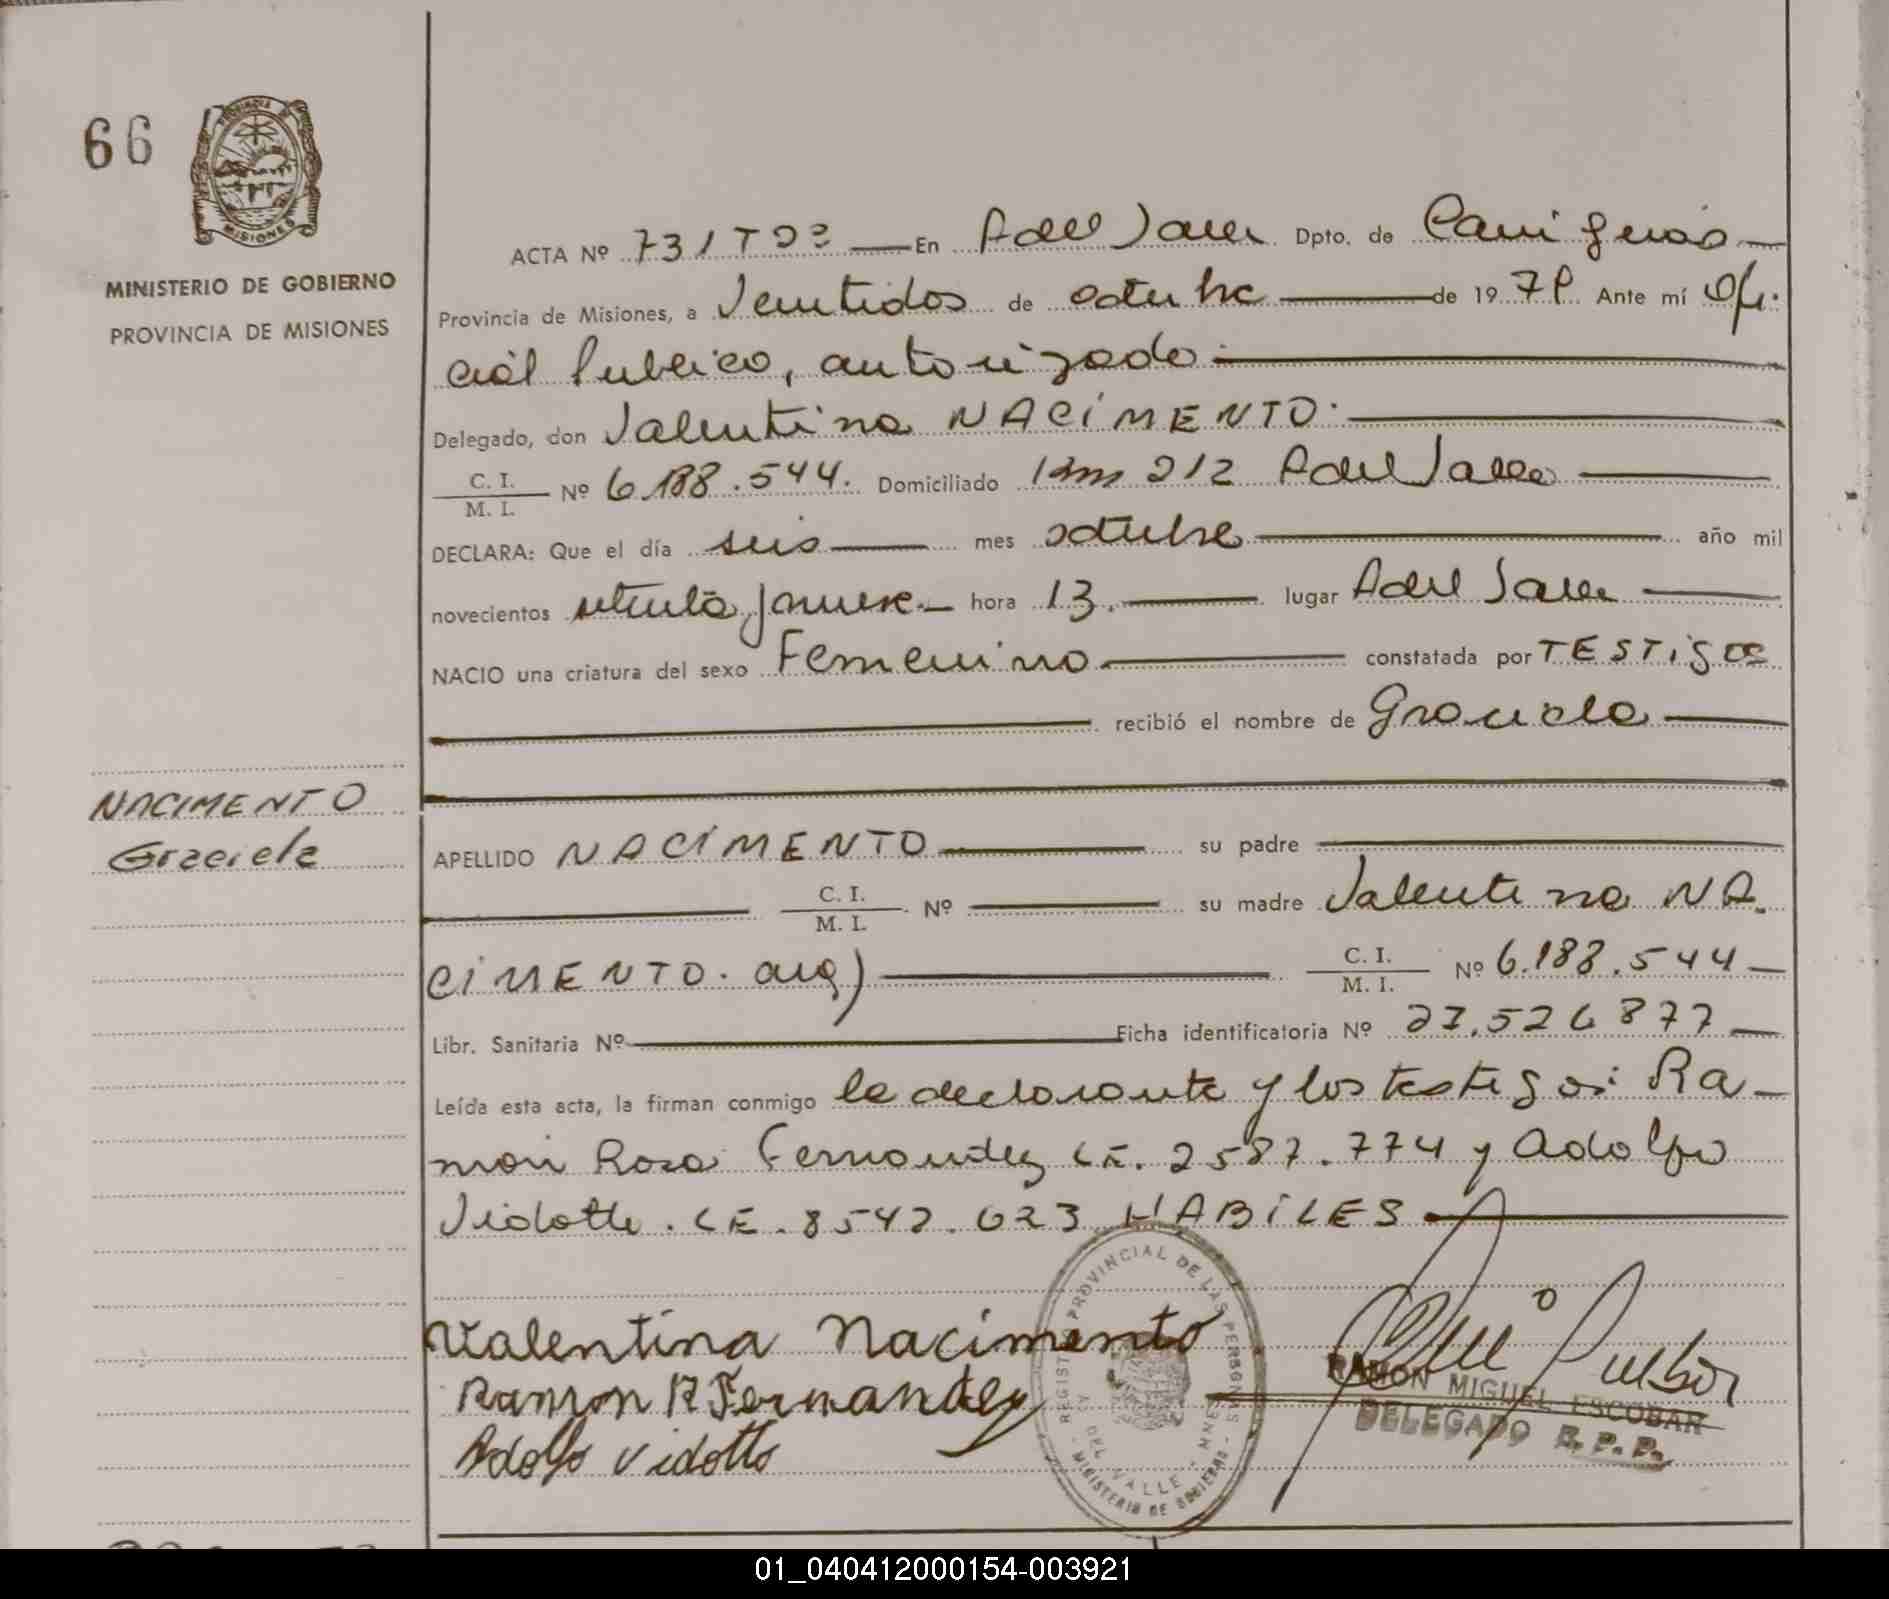 66
PROVINCIA
MISIONES
MINISTERIO DE GOBIERNO
PROVINCIA DE MISIONES
ACTA Nº 731 Tº 2º En A del Valle Dpto. de Cainguas
Provincia de Misiones, a Veintidos de octubre de 19 79 Ante mí Ofi.
cial Publico, autorizado
Delegado, don Valentina NACIMENTO.
C. I. / M. I. Nº 6.188.544. Domiciliado Km 212 A del Valle
DECLARA: Que el día seis mes octubre año mil
novecientos setenta y nueve hora 13. lugar A del Valle
NACIO una criatura del sexo Femenino constatada por TESTIGOS
recibió el nombre de Graciela
NACIMENTO
Graciela
APELLIDO NACIMENTO su padre
C. I. / M. I. Nº su madre Valentina NA.
CIMENTO. arg) C. I. / M. I. Nº 6.188.544
Libr. Sanitaria Nº Ficha identificatoria Nº 27.526877
Leída esta acta, la firman conmigo la declarante y los testigos: Ra-
mon Rosa Fernandez LE. 2587.774 y Adolfo
Vidotto. LE. 8542.623 HABILES
Valentina Nacimento
Ramon R Fernandez
Adolfo Vidotto
REGISTRO PROVINCIAL DE LAS PERSONAS
DEL VALLE - MNES
MINISTERIO DE GOBIERNO
RAMON MIGUEL ESCOBAR
DELEGADO R.P.P.
01_040412000154-003921